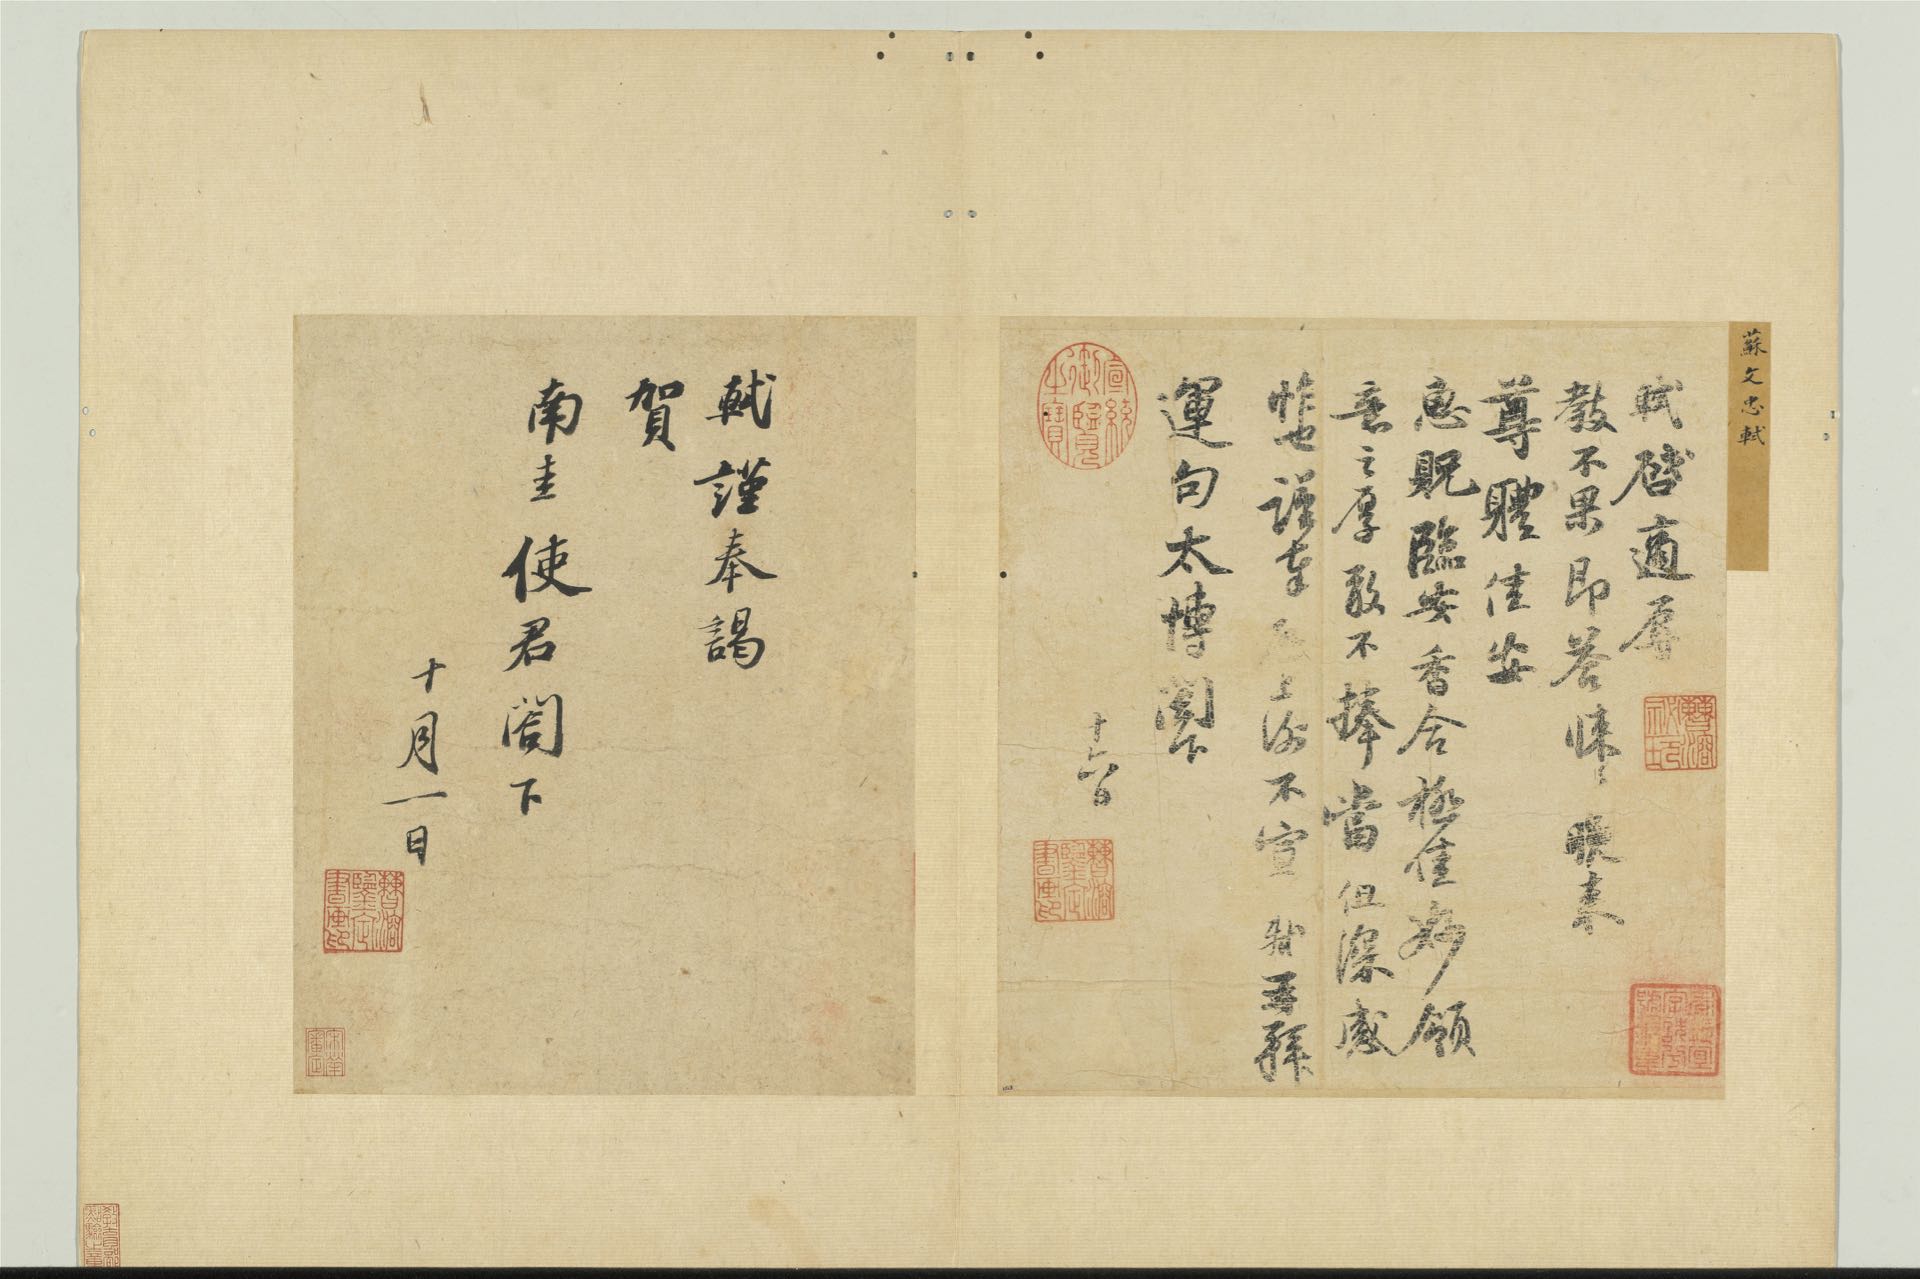 蘇文忠軾
軾啓適辱
教不果即答悚悚晚來
尊體佳安
惠貺臨安香合極佳妙領
意之厚敢不捧當但深感
怍也謹奉啓上謝不宣軾再拜
運句太博閣下
十六日
軾謹奉謁
賀
南圭使君閣下
十月一日
宣統御覽之寶